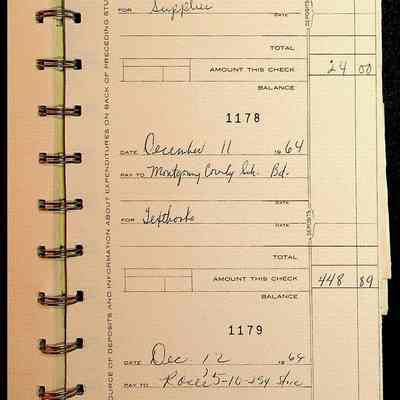 FOR Supplies
DATE
DEPOSITS
TOTAL
AMOUNT THIS CHECK 24 00
BALANCE
1178
DATE December 11 1964
PAY TO Montgomery County Sch. Bd.
DATE
FOR Textbooks
DATE
DEPOSITS
TOTAL
AMOUNT THIS CHECK 448 89
BALANCE
1179
DATE Dec. 12 1964
PAY TO 5-10-25¢ Store
OURCE OF DEPOSITS AND INFORMATION ABOUT EXPENDITURES ON BACK OF PRECEDING STU